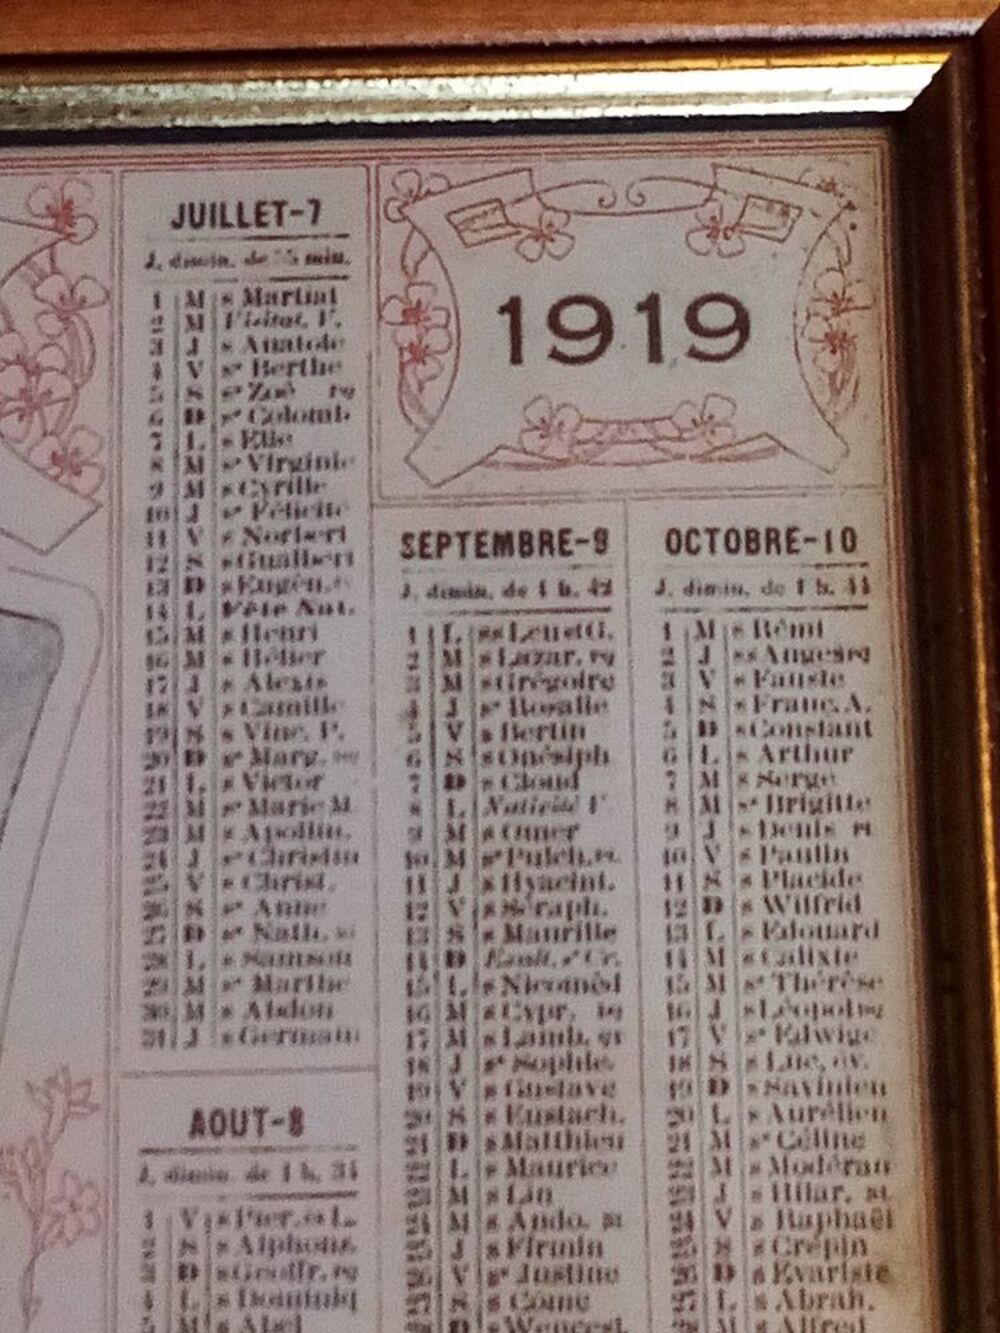 JUILLET-7
J. dimin. de min.
1 M s Martial
2 M Visitat. V.
3 J s Anatole
4 V sᵉ Berthe
5 S sᵉ Zoé
6 D sᵉ Colomb.
7 L s Elie
8 M sᵉ Virginie
9 M s Cyrille
10 J sᵉ Félicité
11 V s Norbert
12 S s Gualbert
13 D s Eugén.
14 L Fête Nat.
15 M s Henri
16 M s Hélier
17 J s Alexis
18 V s Camille
19 S s Vinc. P.
20 D sᵉ Marg.
21 L s Victor
22 M sᵉ Marie M.
23 M s Apollin.
24 J sᵉ Christin
25 V s Christ.
26 S sᵉ Anne
27 D sᵉ Nath.
28 L s Samson
29 M sᵉ Marthe
30 M s Abdon
31 J s Germain
AOUT-8
J. dimin. de 1 h. 34
1 V s Pier. ès L.
2 S s Alphons.
3 D s Geoffr.
4 L s Dominiq
5 M s Abel
1919
SEPTEMBRE-9
J. dimin. de 1 h. 42
1 L ss Leu et G.
2 M s Lazar.
3 M s Grégoire
4 J sᵉ Rosalie
5 V s Bertin
6 S s Onésiph
7 D s Cloud
8 L Nativité V.
9 M s Omer
10 M sᵉ Pulch.
11 J s Hyacint.
12 V s Séraph.
13 S s Maurille
14 D Exalt. sᵉ Cr.
15 L s Nicomèd
16 M s Cypr.
17 M s Lamb.
18 J sᵉ Sophie
19 V s Gustave
20 S s Eustach.
21 D s Matthieu
22 L s Maurice
23 M s Lin
24 M s Ando.
25 J s Firmin
26 V sᵉ Justine
27 S s Côme
28 D s Wencesl.
OCTOBRE-10
J. dimin. de 1 h. 44
1 M s Rémi
2 J ss Anges
3 V s Fauste
4 S s Franç. A.
5 D s Constant
6 L s Arthur
7 M s Serge
8 M sᵉ Brigitte
9 J s Denis
10 V s Paulin
11 S s Placide
12 D s Wilfrid
13 L s Edouard
14 M s Calixte
15 M sᵉ Thérèse
16 J s Léopold
17 V sᵉ Edwige
18 S s Luc, év.
19 D s Savinien
20 L s Aurélien
21 M sᵉ Céline
22 M s Modéran
23 J s Hilar.
24 V s Raphaël
25 S s Crépin
26 D s Evariste
27 L s Abrah.
28 M s Alfred